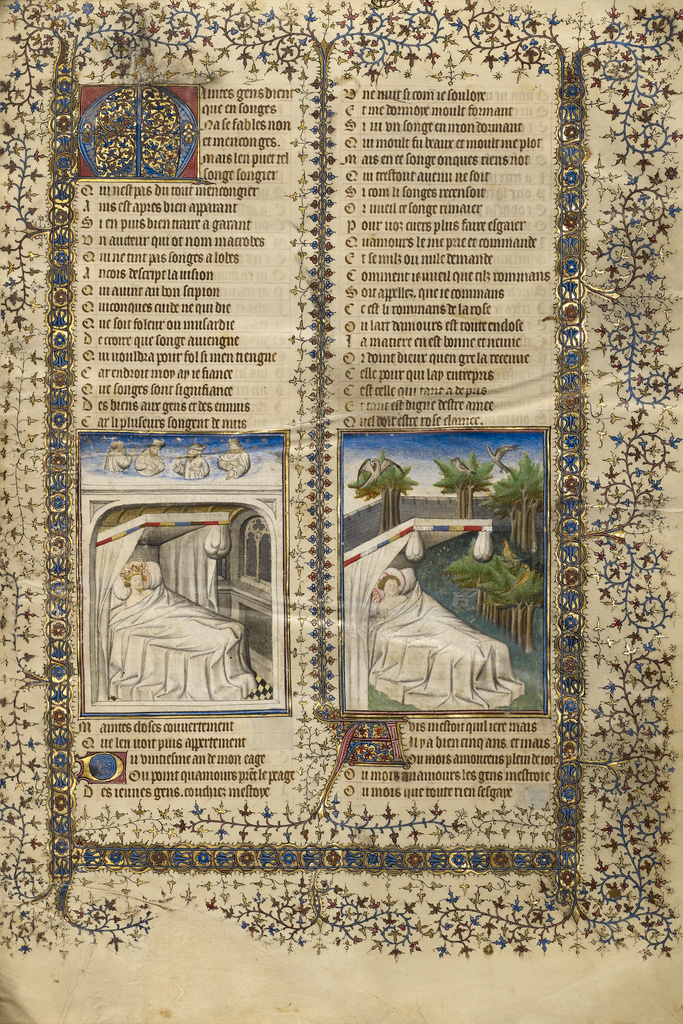 Maintes gens dient
que en songes
Na se fables non
et menconges.
Mais len puet tel
songe songier
Qui nest pas du tout mencongier
Ains est apres bien apparant
Si en puis bien traire a garant
Un aucteur qui ot nom macrobes
Qui ne tint pas songes a lobes
Ancois descript la vision
Qui avint au bon scipion
Quiconques cuide ne qui die
Que soit foleur ou musardie
De croire que songe aviengne
Qui vouldra pour fol si men tiengne
Car endroit moy ay ie fiance
Que songes sont signifiance
Des biens aux gens et des ennuis
Car li pluseurs songent de nuis
Maintes choses couvertement
Que len voit puis apertement
Ou vintiesme an de mon eage
Ou point quamours prent le peage
Des ieunes gens. couchiez mestoye
Une nuit si com ie souloye
Et me dormoye moult forment
Si vi un songe en mon dormant
Qui moult fu beaux et moult me plot
Mais en ce songe onques riens not
Qui trestout avenu ne soit
Si com li songes recensoit
Or vueil ce songe rimoier
Pour voz cuers plus faire esgaier
Quamours le me prie et commande
Et se nulz ou nule demande
Comment ie vueil que cilz rommans
Soit appellez, que ie commans
Ce est li rommans de la rose
Ou lart damours est toute enclose
La matiere en est bonne et neuve
Or doint dieux quen gre la recoive
Celle pour qui lay entrepris
Cest celle qui tant a de pris
Et tant est digne destre amee
Quel doit estre rose clamee.
Avis mestoit quil iere mais
Il y a bien cinq ans et mais
Ou mois amoureus plein de ioie
Ou mois quamours les gens mestroie
Ou mois que toute rien sesgaye